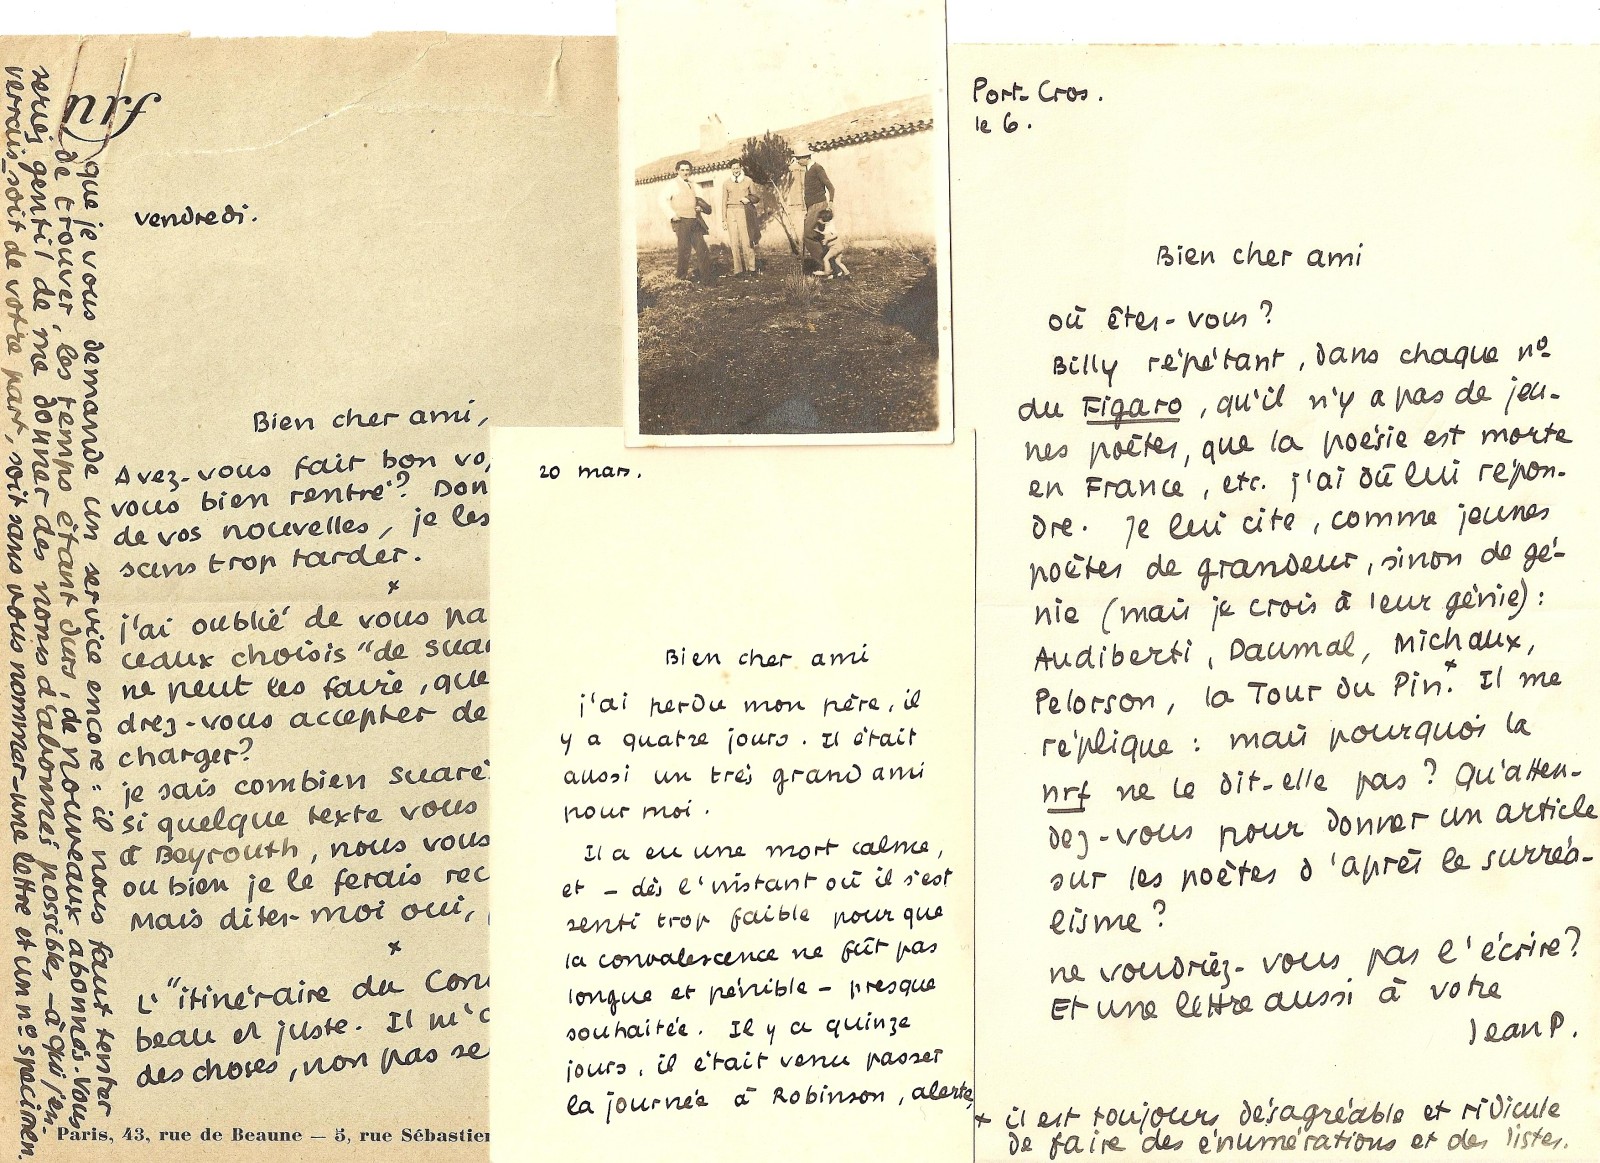 nrf
vendredi.
Bien cher ami,
Avez-vous fait bon vo
vous bien rentré? Don
de vos nouvelles, je les
sans trop tarder.
x
j'ai oublié de vous pa
ceaux choisis "de Suar
ne peut les faire, que
drez-vous accepter de
charger?
je sais combien Suarè
si quelque texte vous
à Beyrouth, nous vous
ou bien je le ferais rec
Mais dites-moi oui,
x
L'"itinéraire du Con
beau et juste. Il m'a
des choses, non pas se
Paris, 43, rue de Beaune — 5, rue Sébastien
que je vous demande un service encore : il nous faut tenter
de trouver, les temps étant durs, de nouveaux abonnés. Vous
seriez gentil de me donner des noms d'abonnés possibles, - à qui j'en
verrais, soit de votre part, soit sans vous nommer - une lettre et un nº specimen.
20 mars.
Bien cher ami
j'ai perdu mon père, il
y a quatre jours. Il était
aussi un très grand ami
pour moi.
Il a eu une mort calme,
et - dès l'instant où il s'est
senti trop faible pour que
la convalescence ne fût pas
longue et pénible - presque
souhaitée. Il y a quinze
jours, il était venu passer
la journée à Robinson, alerte,
Port-Cros.
le 6.
Bien cher ami
où êtes-vous?
Billy répétant, dans chaque nº
du Figaro, qu'il n'y a pas de jeu-
nes poètes, que la poésie est morte
en France, etc. j'ai dû lui répon-
dre. Je lui cite, comme jeunes
poètes de grandeur, sinon de gé-
nie (mais je crois à leur génie) :
Audiberti, Daumal, Michaux,
Pelorson, la Tour du Pin.x Il me
réplique : mais pourquoi la
nrf ne le dit-elle pas? Qu'atten-
dez-vous pour donner un article
sur les poètes d'après le surréa-
lisme?
ne voudriez-vous pas l'écrire?
Et une lettre aussi à votre
Jean P.
x il est toujours désagréable et ridicule
de faire des énumérations et des listes.